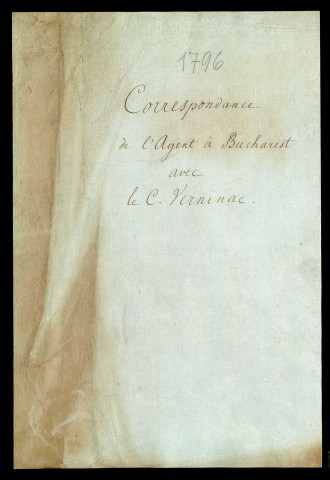 1796
Correspondance
de l'Agent à Bucharest
avec
le C. Verninac.